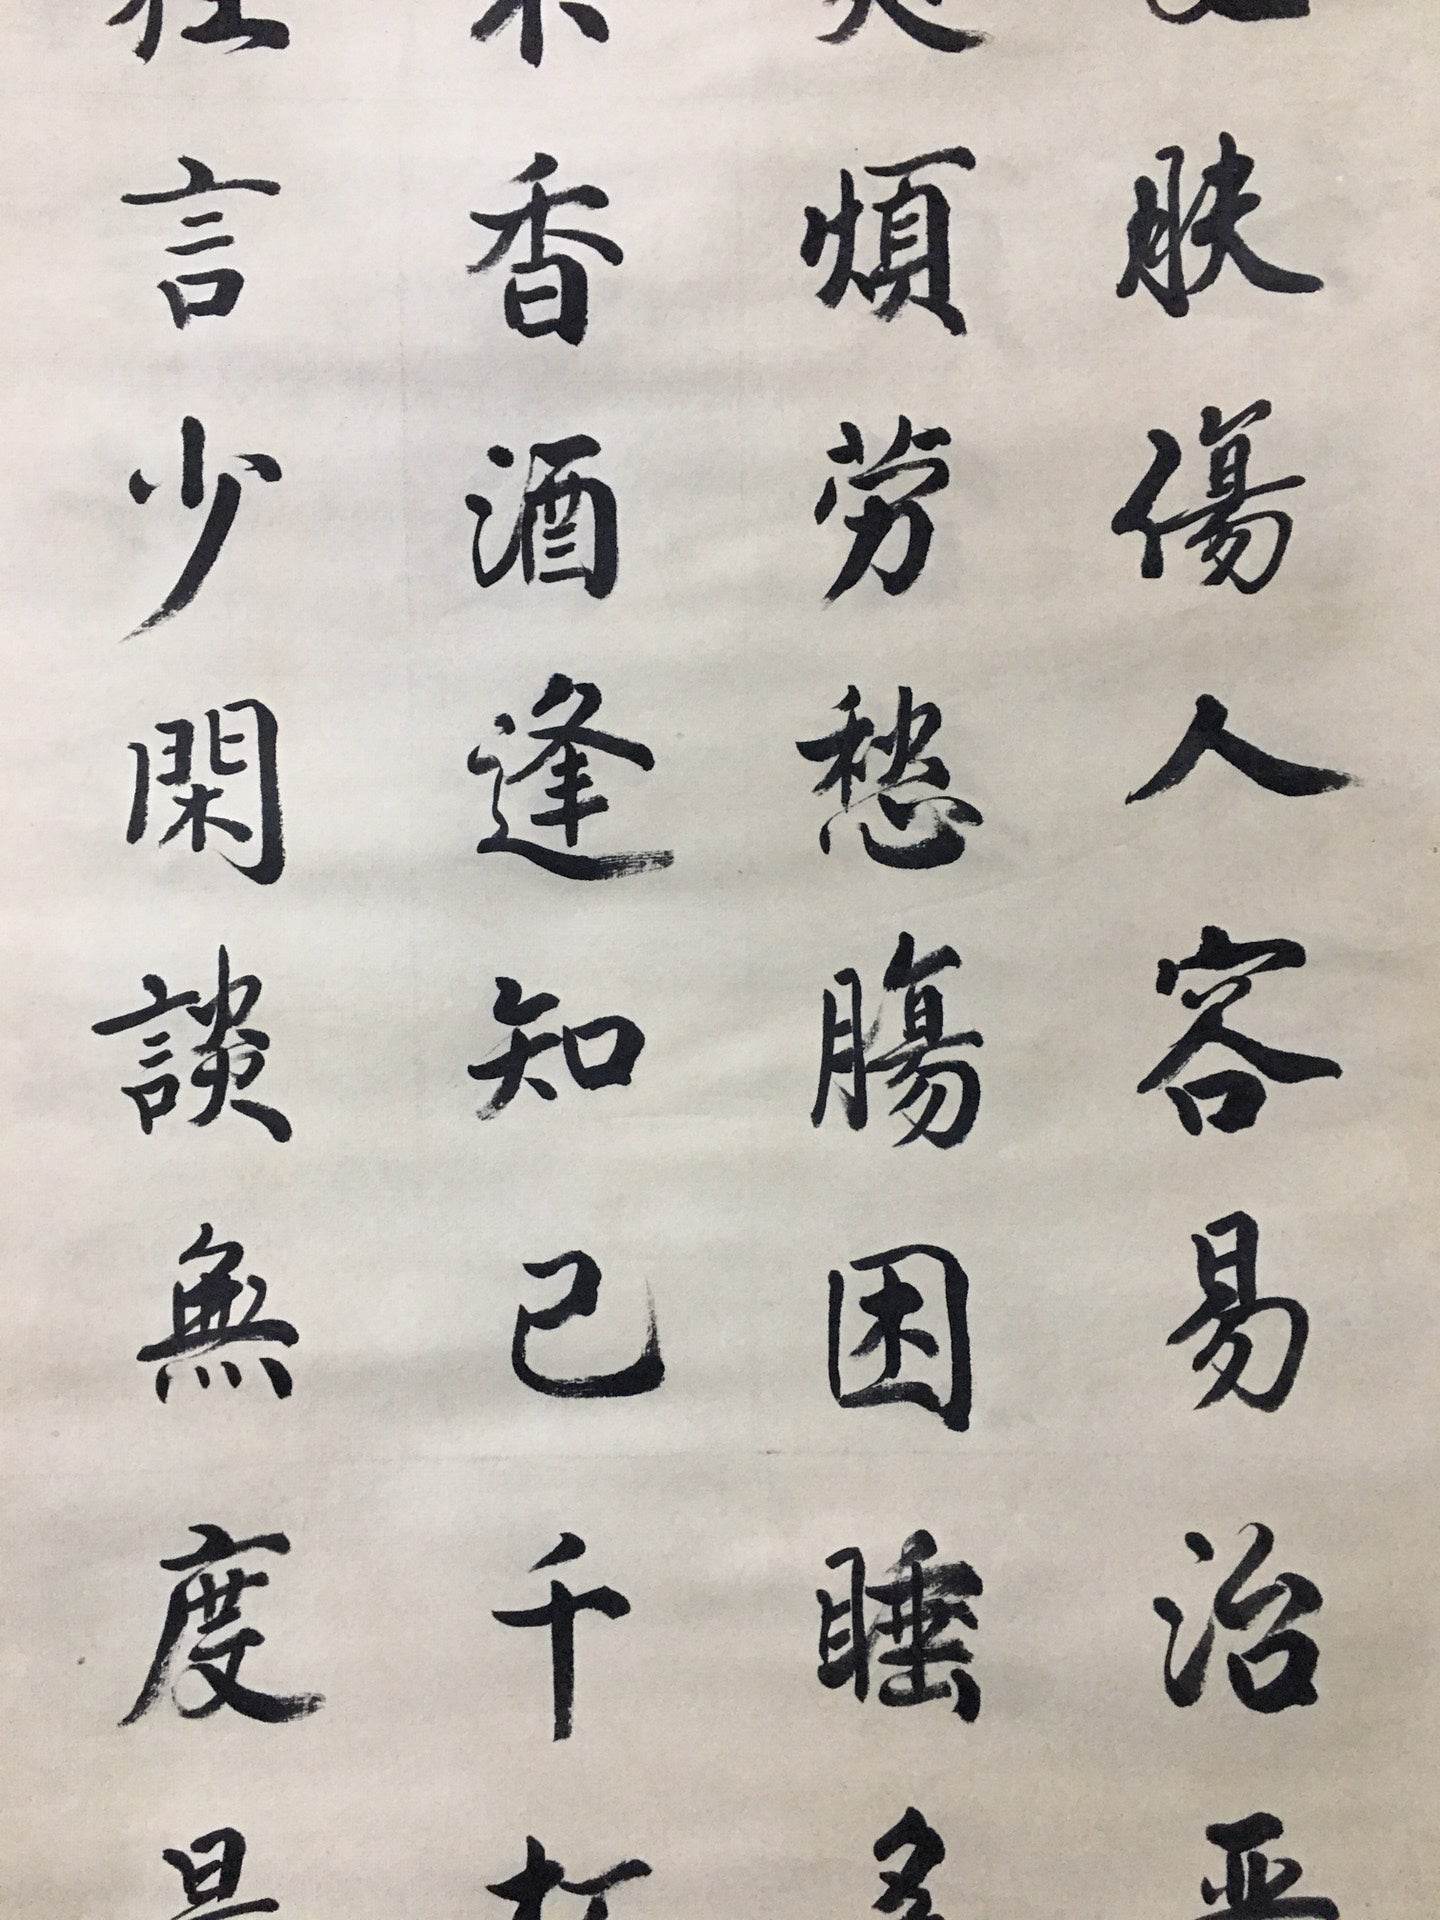 肤傷人容易治
煩劳愁腸困睡
香酒逢知己千
言少閑談無度